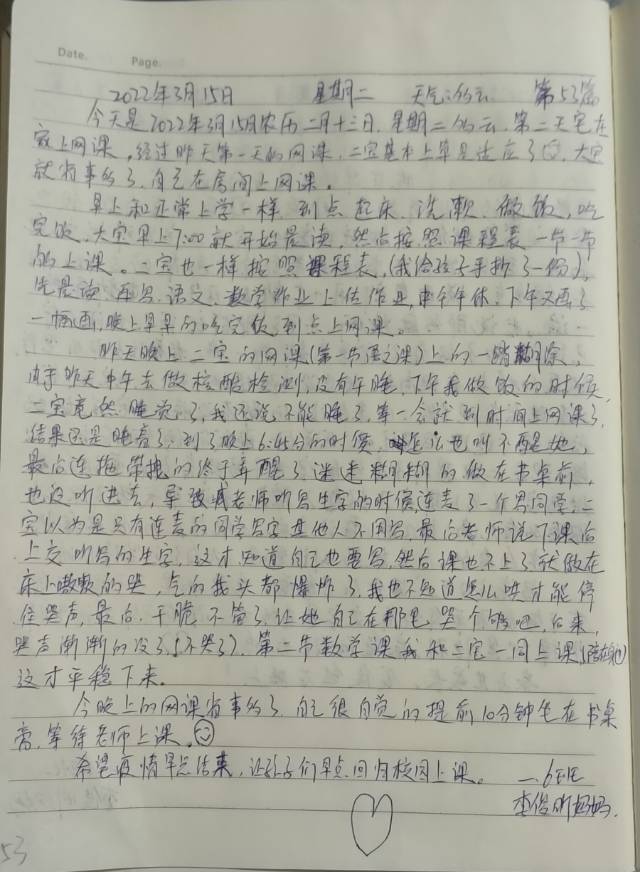 Date.
Page.
2022年3月15日 星期二 天气:多云 第53篇
今天是2022年3月15日农历二月十三日,星期二多云,第二天宅在
家上网课,经过昨天第一天的网课,二宝基本上算是适应了,大宝
就省事多了,自己在房间上网课。
早上和正常上学一样,到点起床、洗漱、做饭,吃
完饭,大宝早上7:00就开始晨读,然后按照课程表一节一节
的上课。二宝也一样按照课程表,(我给孩子手抄了一份),
先晨读,再写语文、数学作业上传作业,中午午休,下午又画了
一幅画,晚上早早的吃完饭,到点上网课。
昨天晚上二宝的网课(第一节语文课)上的一踏糊涂,
由于昨天中午去做核酸检测,没有午睡,下午我做饭的时候,
二宝竟然睡觉了,我还说不能睡了,等一会就到时间上网课了,
结果还是睡着了,到了晚上6:45分的时候,怎么也叫不醒她,
最后连拖带拽的终于弄醒了,迷迷糊糊的做在书桌前,
也没听进去,等老师听写生字的时候连麦了一个男同学,二
宝以为是只有连麦的同学写字其他人不用写,最后老师说下课后
上交听写的生字,这才知道自己也要写,然后课也不上了就做在
床上嗷嗷的哭,气的我头都爆炸了,我也不知道怎么哄才能停
住哭声,最后,干脆不管了,让她自己在那里哭个够吧,后来,
哭声渐渐的没了,(不哭了)。第二节数学课我和二宝一同上课(陪在身边)
这才平稳下来。
今晚上的网课省事多了,自己很自觉的提前10分钟坐在书桌
旁,等待老师上课。
希望疫情早点结束,让孩子们早点回归校园上课。 一.6班
李俊昕妈妈.
53